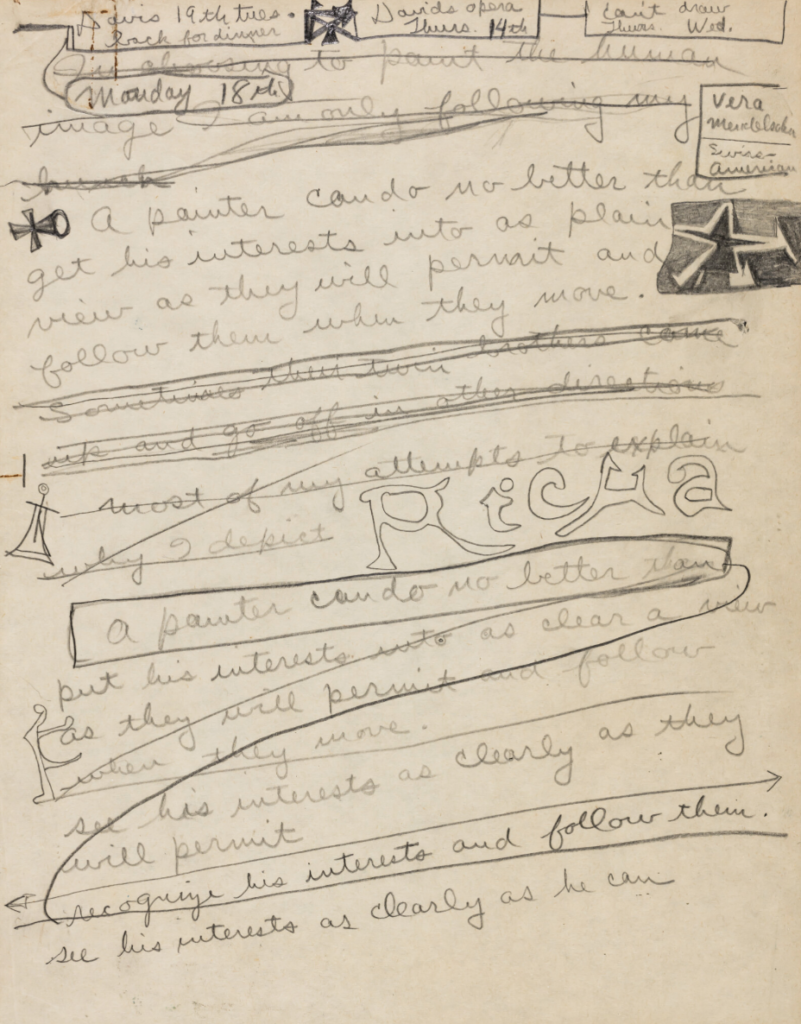 Davis 19th tues.
back for dinner
Davids opera
Thurs. 14th
Can't draw
Thurs. Wed.
In choosing to paint the human
Monday 18th
image I am only following my
hunch
Vera
Swiss-
American
A painter can do no better than
get his interests into as plain
view as they will permit and
follow them when they move.
Sometimes their twin brothers come
up and go off in other directions
most of my attempts to explain
why I depict
A painter can do no better than
put his interests into as clear a view
as they will permit and follow
when they move.
see his interests as clearly as they
will permit
recognize his interests and follow them.
see his interests as clearly as he can